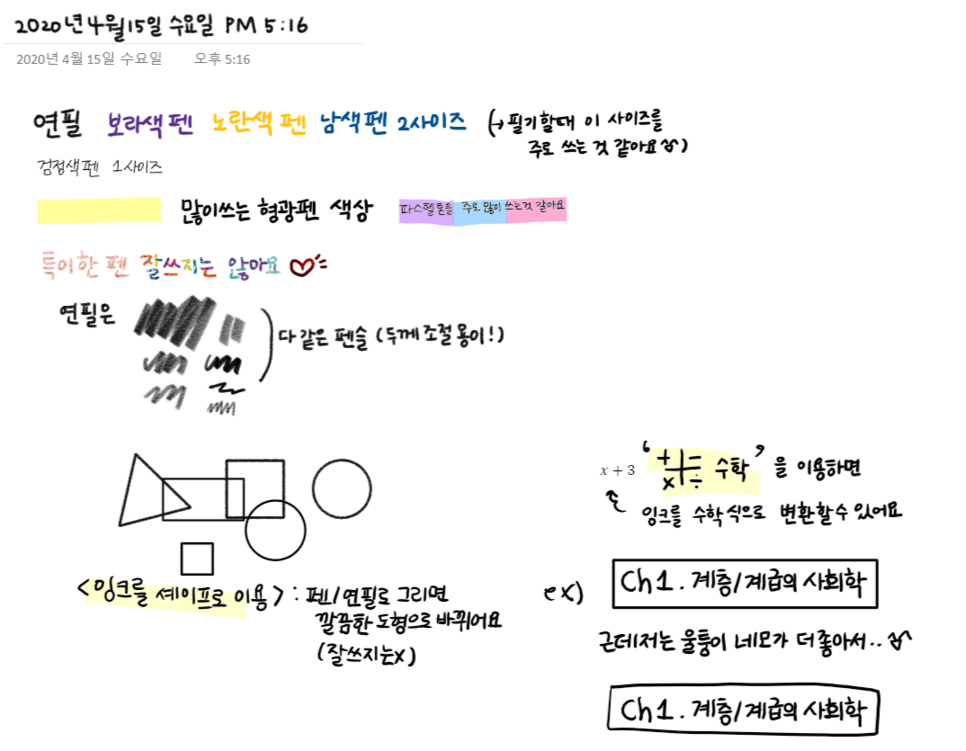 2020년 4월 15일 수요일 PM 5:16
2020년 4월 15일 수요일 오후 5:16
연필 보라색 펜 노란색 펜 남색펜 2사이즈 (→ 필기할때 이 사이즈를
주로 쓰는 것 같아요 ^^)
검정색펜 1사이즈
많이쓰는 형광펜 색상 파스텔톤을 주로 많이 쓰는것 같아요
특이한 펜 잘쓰지는 않아요
연필은
다 같은 펜슬 (두께 조절 용이!)
x + 3 ‘ + - × ÷ 수학 ’ 을 이용하면
잉크를 수학식으로 변환할수 있어요
<잉크를 셰이프로 이용> : 펜/연필로 그리면
깔끔한 도형으로 바뀌어요
(잘쓰지는x)
ex) Ch 1. 계층/계급의 사회학
근데저는 울퉁이 네모가 더 좋아서.. ^^
Ch 1. 계층/계급의 사회학